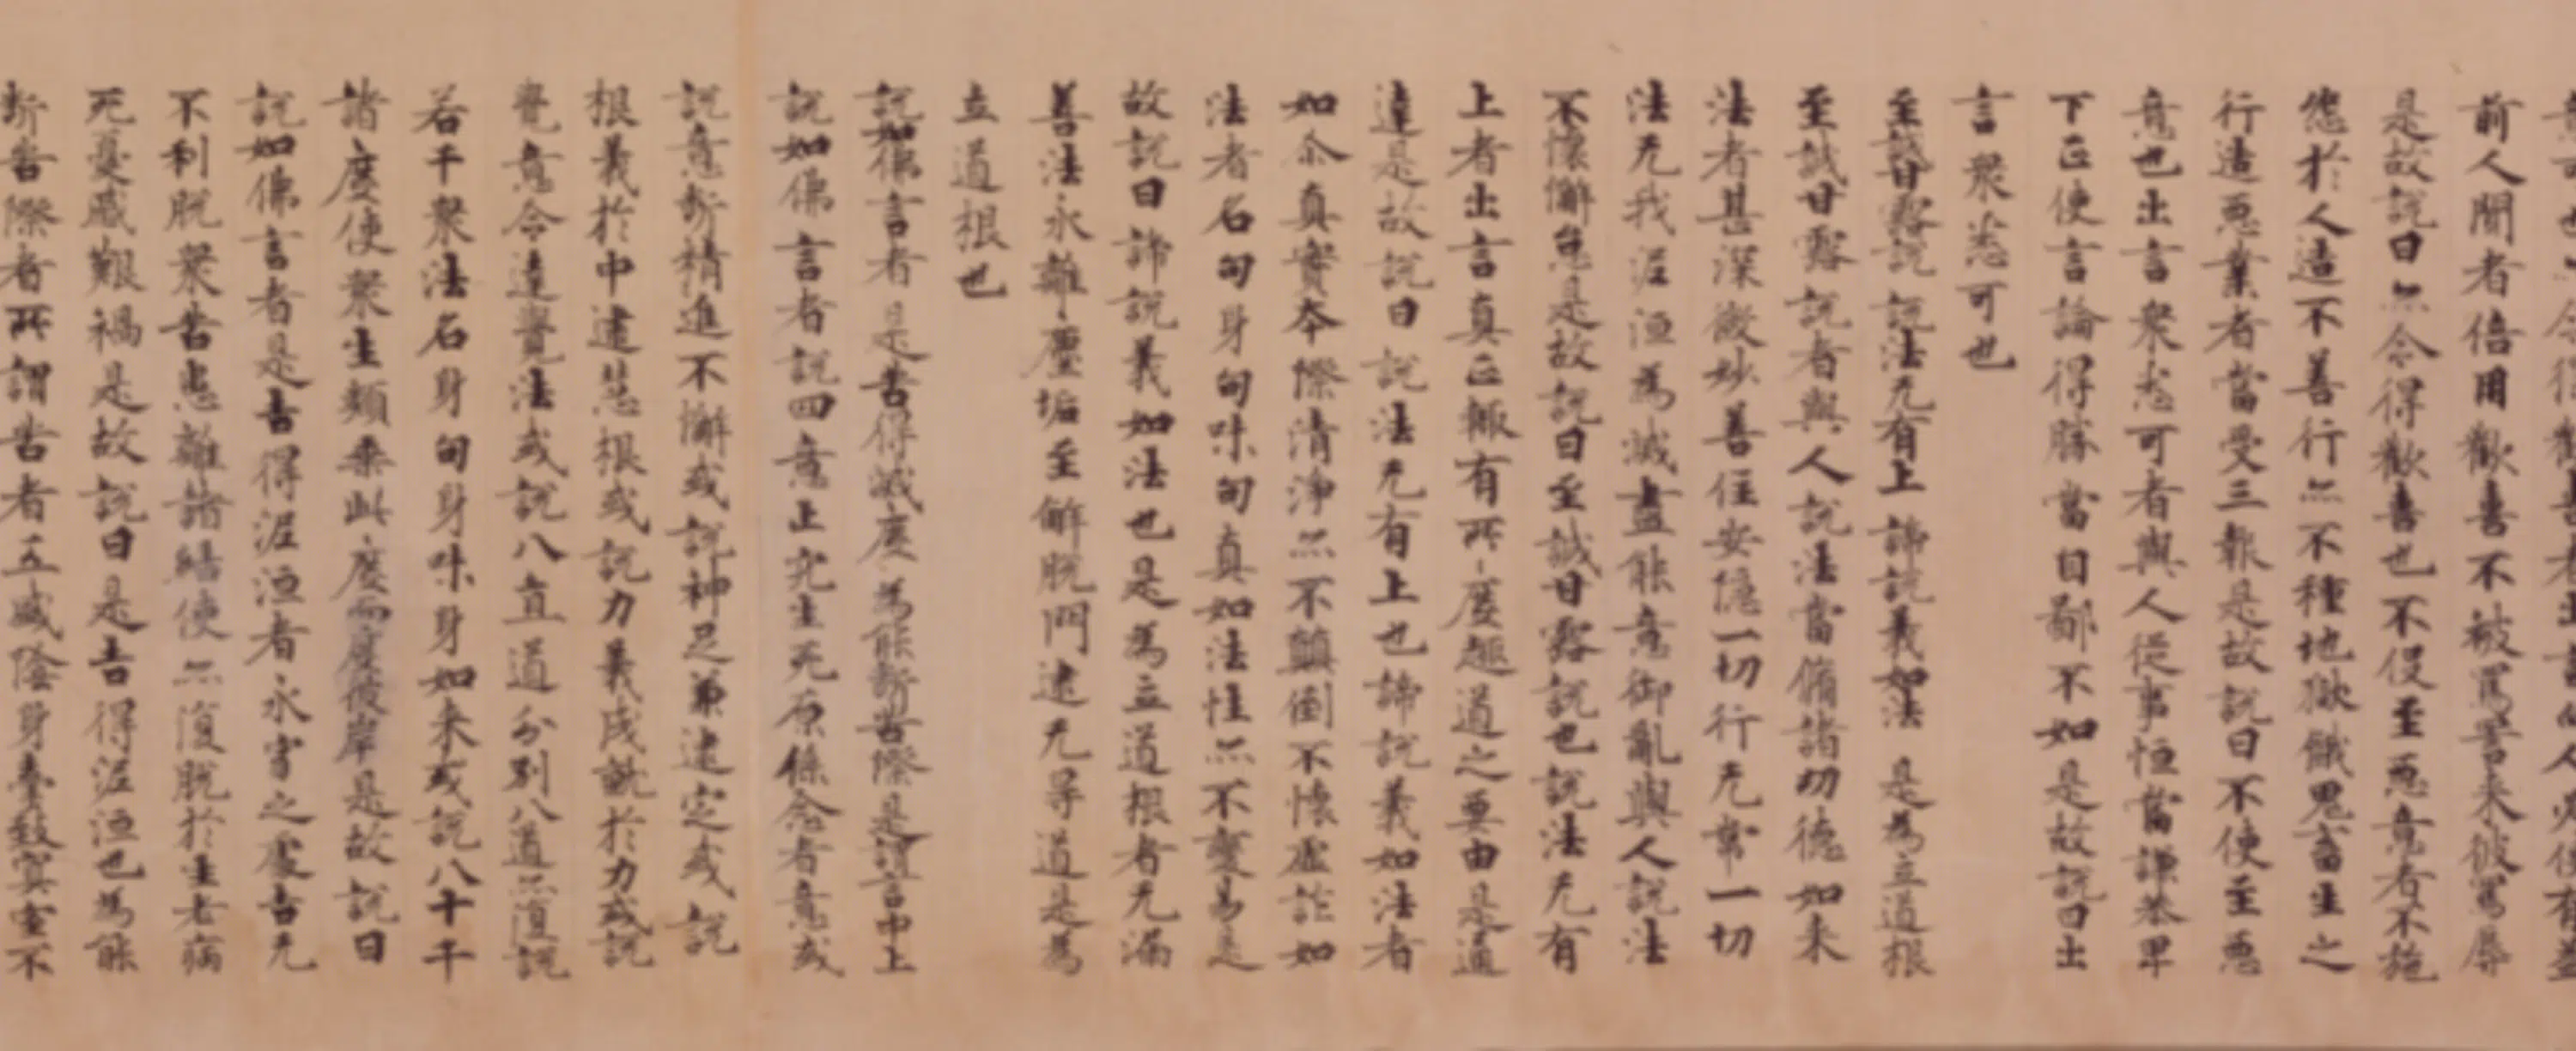 前人聞者倍用歡喜不被罵詈来彼罵辱
是故說曰亦令得歡喜也不侵至惡意者不施
怨於人造不善行亦不種地獄餓鬼畜生之
行造惡業者當受三報是故說曰不使至惡
意也出言衆悉可者與人從事恒當謙恭卑
下正使言論得勝當自鄙不如是故說曰出
言衆悉可也
至誠甘露說說法无有上諦說義如法是為立道根
至誠甘露說者與人說法當脩諸功德如来
法者甚深微妙善住安隱一切行无常一切
法无我涅洹為滅盡能意御亂與人說法
不懷懈怠是故說曰至誠甘露說也說法无有
上者出言真正輙有所度趣道之要由是通
達是故說曰說法无有上也諦說義如法者
如尒真實本際清淨亦不顛倒不懷虛詐如
法者名句身句味句真如法性亦不變易是
故說曰諦說義如法也是為立道根者无漏
善法永離塵垢至解脫門逮无㝵道是為
立道根也
說如佛言者是吉得滅度為能斷苦際是謂言中上
說如佛言者說四意止究生死原係念者意或
說意斷精進不懈或說神足兼逮定或說
根義於中逮慧根或說力義成就於力或說
覺意令達覺法或說八直道分別八道亦復說
若干衆法名身句身味身如来或說八十千
諸度使衆生類乘此度而度彼岸是故說曰
說如佛言者是吉得涅洹者永寧之處吉无
不利脫衆苦患離諸結使亦復脫於生老病
死憂慼艱禍是故說曰是吉得涅洹也為能
斷苦際者所謂苦者五盛陰身臺殺冥室不